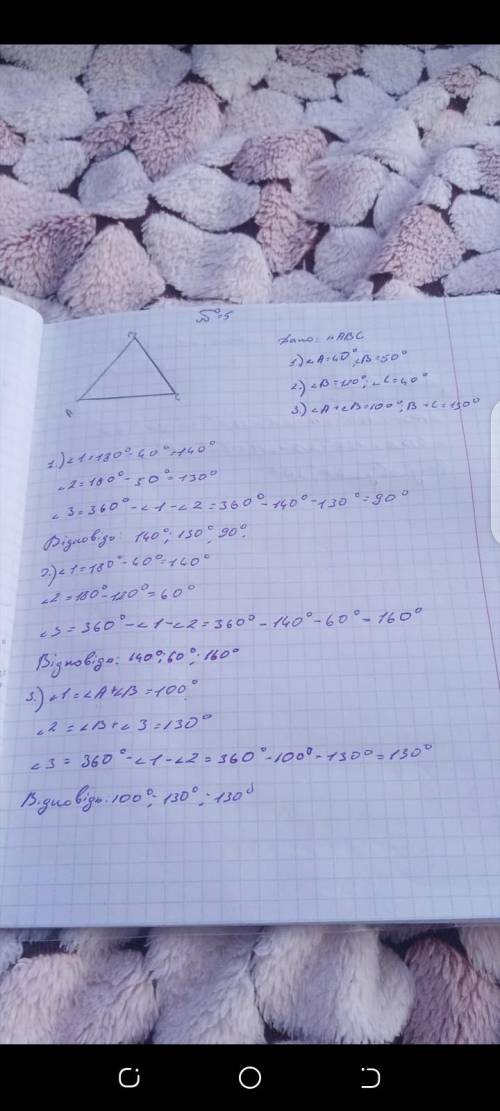 №5
Дано: △ABC
1) ∠A=40°; ∠B=50°
2.) ∠B=120°; ∠C=40°
3) ∠A+∠B=100°; B+C=130°
B
A
C
1.) ∠1=180°-40°=140°
∠2=180°-50°=130°
∠3=360°-∠1-∠2=360°-140°-130°=90°
Відповідь: 140°; 130°; 90°.
2.) ∠1=180°-40°=140°
∠2=180°-120°=60°
∠3=360°-∠1-∠2=360°-140°-60°=160°
Відповідь: 140°; 60°; 160°
3.) ∠1=∠A+∠B=100°
∠2=∠B+∠3=130°
∠3=360°-∠1-∠2=360°-100°-130°=130°
Відповідь: 100°; 130°; 130°